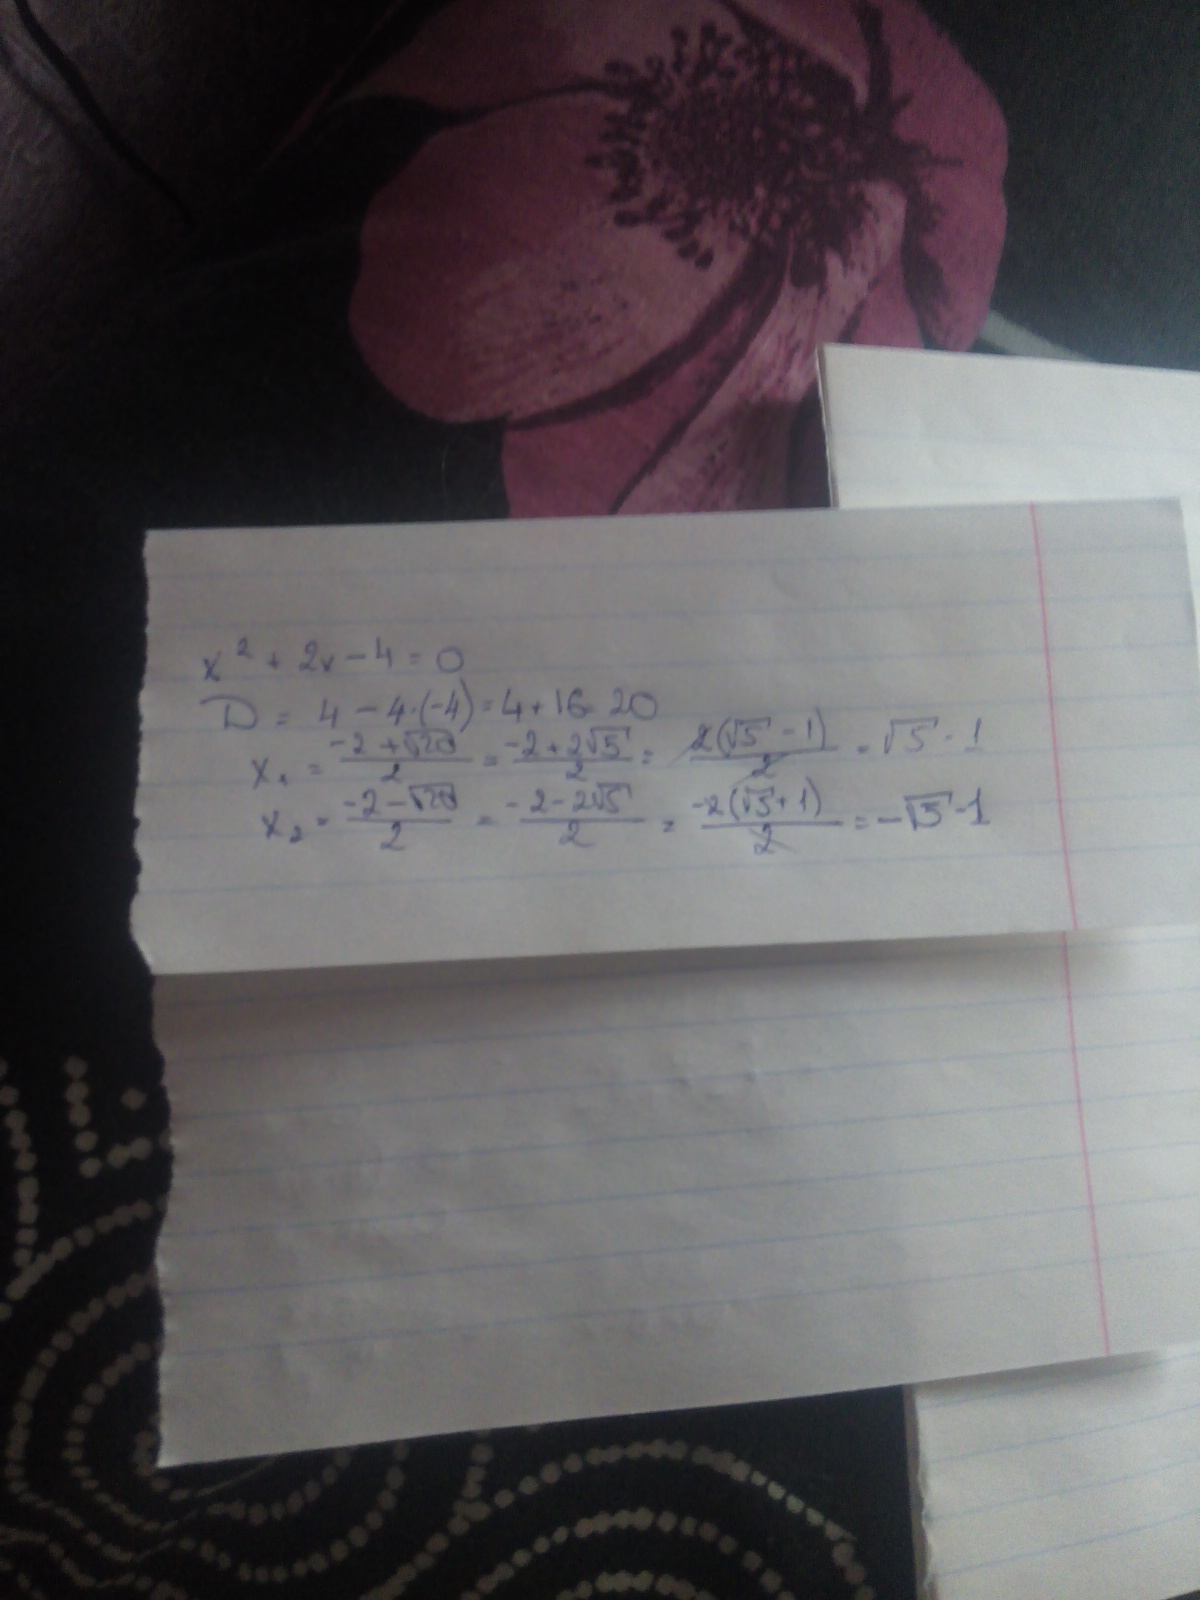 x² + 2x - 4 = 0
D = 4 - 4·(-4) = 4 + 16 = 20
x₁ = (-2 + √20)/2 = (-2 + 2√5)/2 = 2(√5 - 1)/2 = √5 - 1
x₂ = (-2 - √20)/2 = (-2 - 2√5)/2 = -2(√5 + 1)/2 = -√5 - 1